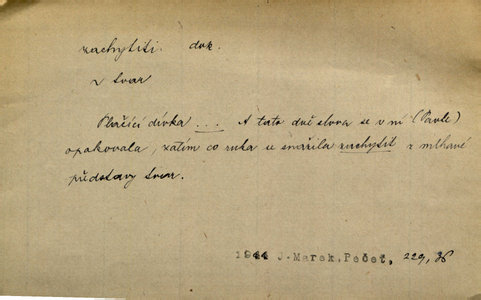 zachytiti dok.
z tvar
Plačící dívka ... A tato dvě slova se v ní (Pavle)
opakovala, zatím co ruka se snažila zachytit z mlhavé
představy tvar.
1944 J. Marek, Pečeť, 229, 36